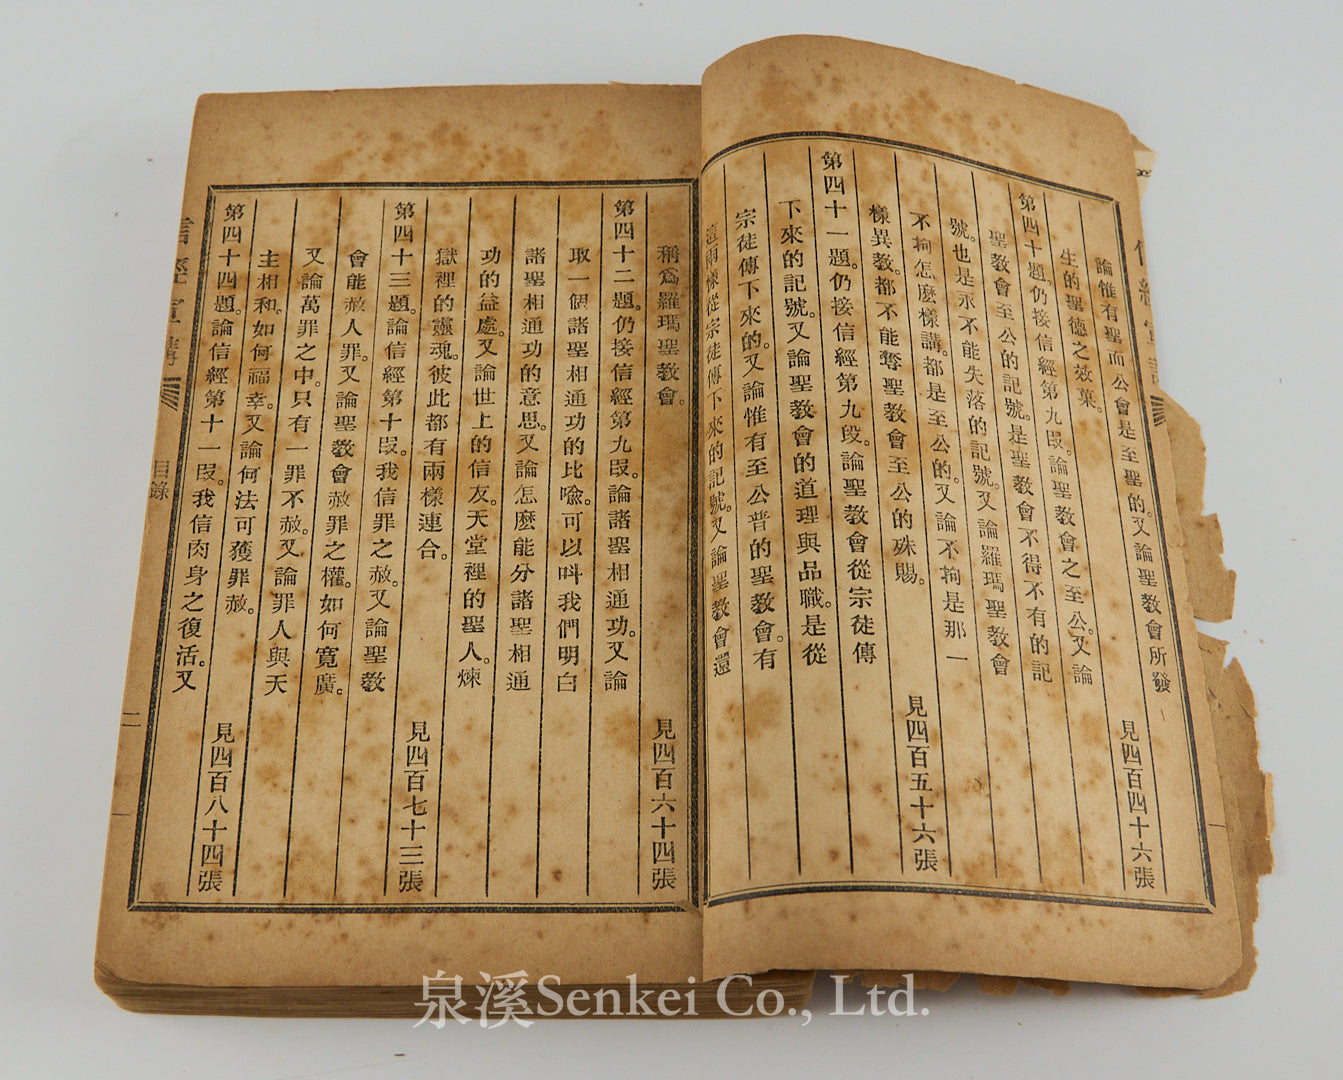 論惟有聖而公會是至聖的。又論聖教會所發
生的聖德之效菓。 見四百四十六張
第四十題。仍接信經第九段。論聖教會之至公。又論
聖教會至公的記號。是聖教會不得不有的記
號。也是永不能失落的記號。又論羅瑪聖教會
不拘怎麼樣講。都是至公的。又論不拘是那一
樣異教。都不能奪聖教會至公的殊賜。 見四百五十六張
第四十一題。仍接信經第九段。論聖教會從宗徒傳
下來的記號。又論聖教會的道理與品職。是從
宗徒傳下來的。又論惟有至公普的聖教會。有
這兩樣從宗徒傳下來的記號。又論聖教會還
稱為羅瑪聖教會。 見四百六十四張
第四十二題。仍接信經第九段。論諸聖相通功。又論
取一個諸聖相通功的比喩。可以呌我們明白
諸聖相通功的意思。又論怎麼能分諸聖相通
功的益處。又論世上的信友。天堂裡的聖人。煉
獄裡的靈魂。彼此都有兩樣連合。
第四十三題。論信經第十段。我信罪之赦。又論聖教 見四百七十三張
會能赦人罪。又論聖教會赦罪之權。如何寬廣。
又論萬罪之中。只有一罪不赦。又論罪人與天
主相和。如何福幸。又論何法可獲罪赦。
第四十四題。論信經第十一段。我信肉身之復活。又 見四百八十四張
目錄
二
泉溪Senkei Co., Ltd.